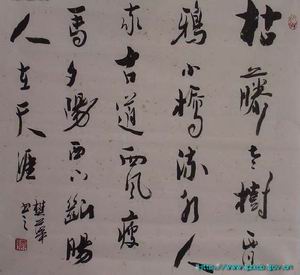 枯藤老樹昏
鴉小橋流水人
家古道西風瘦
馬夕陽西下斷腸
人在天涯